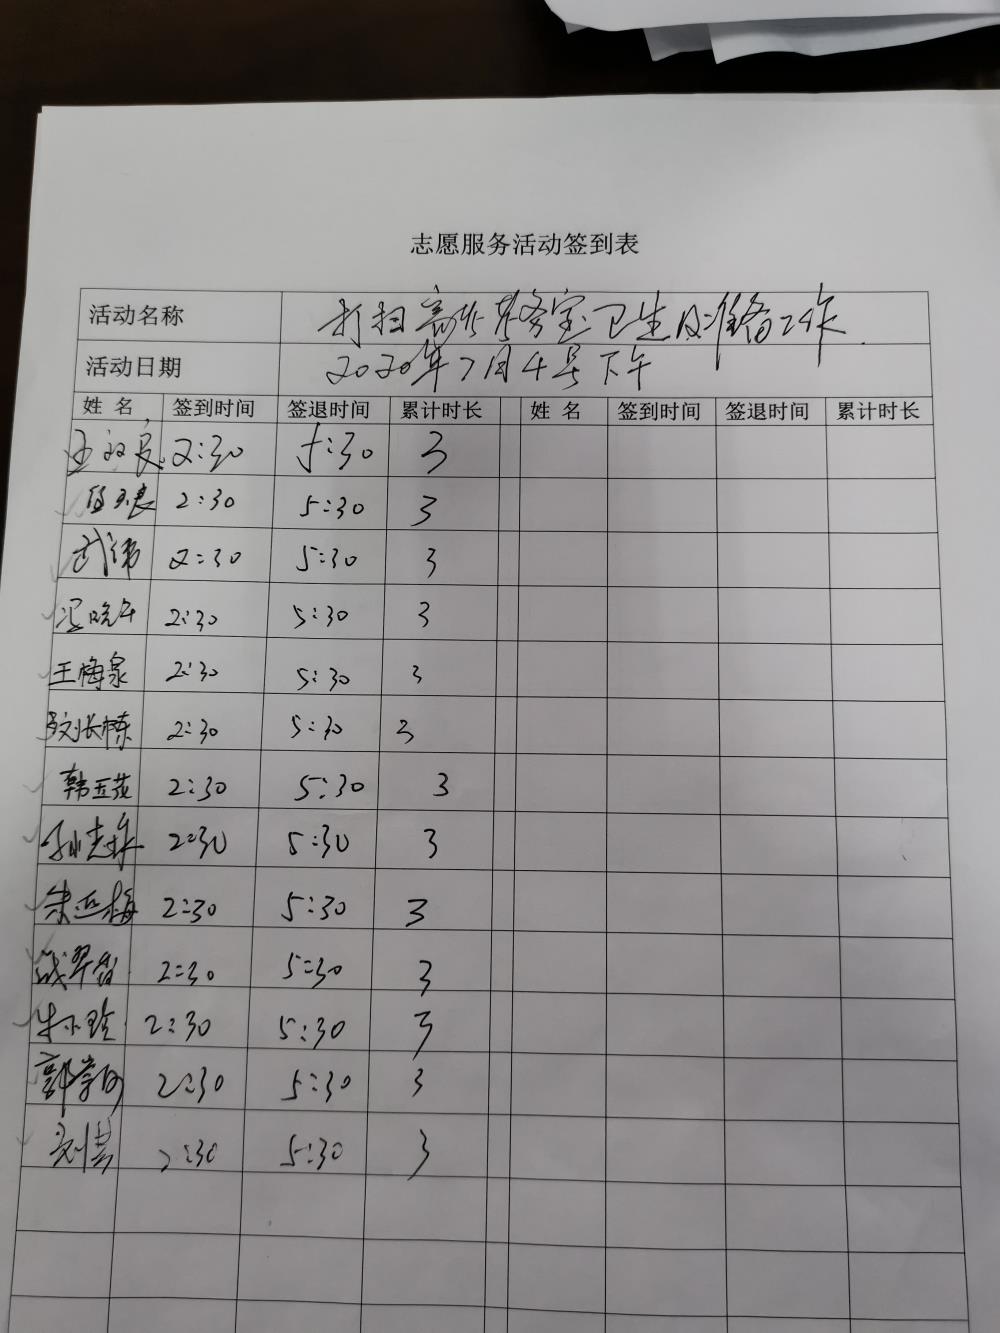 志愿服务活动签到表
活动名称 打扫 卫生及准备工作
活动日期 2020年7月4号下午
姓名 签到时间 签退时间 累计时长 姓名 签到时间 签退时间 累计时长
2:30 5:30 3
2:30 5:30 3
武伟 2:30 5:30 3
冯晓午 2:30 5:30 3
王梅泉 2:30 5:30 3
刘长栋 2:30 5:30 3
韩玉花 2:30 5:30 3
孙志 2:30 5:30 3
朱亚梅 2:30 5:30 3
2:30 5:30 3
2:30 5:30 3
郭 2:30 5:30 3
刘 2:30 5:30 3